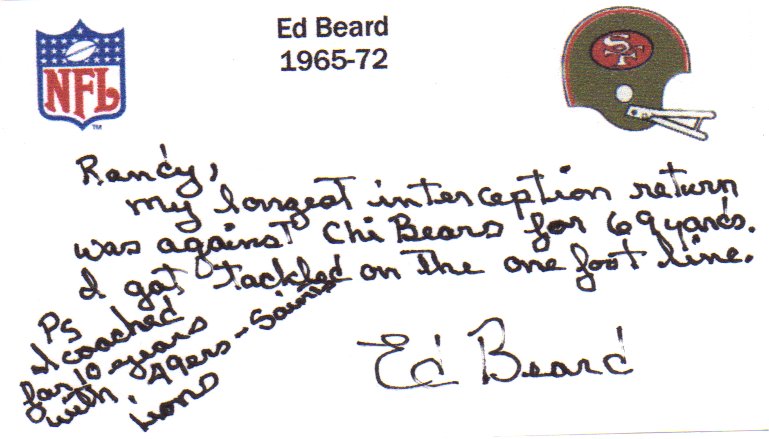 NFL
TM
Ed Beard
1965-72
SF
Randy,
my longest interception return
was against Chi Bears for 69 yards.
I got tackled on the one foot line.
Ps
I coached
for 10 years
with 49ers - Saints
Lions
Ed Beard